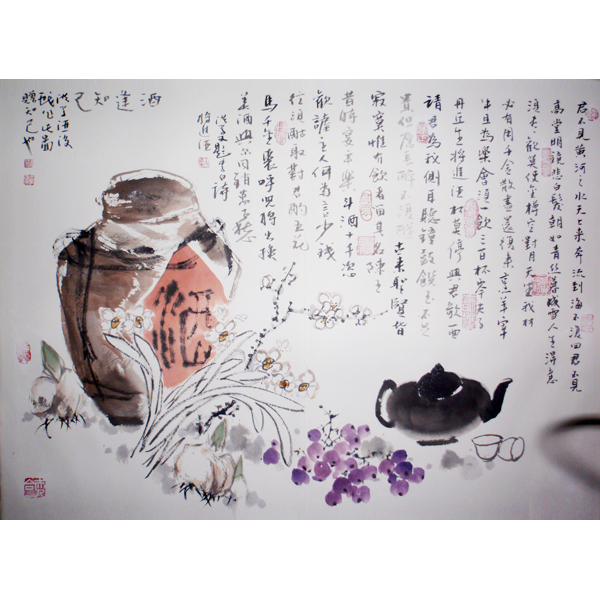 君不見黃河之水天上來奔流到海不復回君不見
高堂明鏡悲白髮朝如青絲暮成雪人生得意
須盡歡莫使金樽空對月天生我材
必有用千金散盡還復來烹羊宰
牛且為樂會須一飲三百杯岑夫子
丹丘生將進酒杯莫停與君歌一曲
請君為我側耳聽鐘鼓饌玉不足
貴但願長醉不復醒古來聖賢皆
寂寞惟有飲者留其名陳王
昔時宴平樂斗酒十千恣
歡謔主人何為言少錢
徑須酤取對君酌五花
馬千金裘呼兒將出換
美酒與爾同銷萬古愁
將進酒
酒逢知己
酒後
戲作此圖
贈知己也
酒